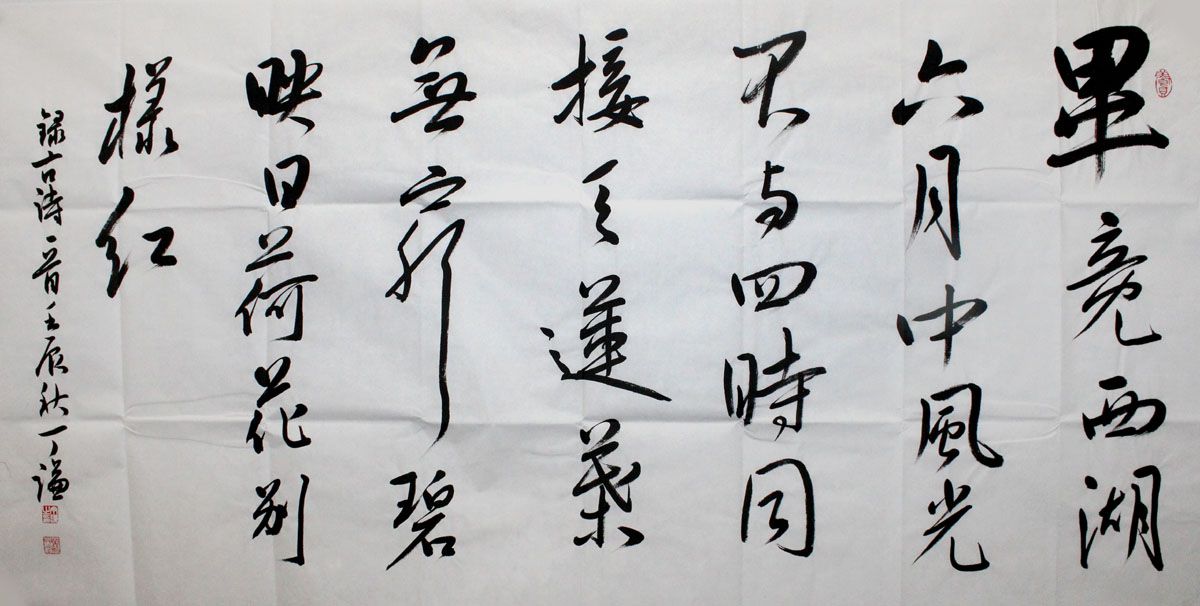 畢竟西湖
六月中風光
不與四時同
接天蓮葉
無窮碧
映日荷花别
樣紅
録古詩一首壬辰秋丁謙